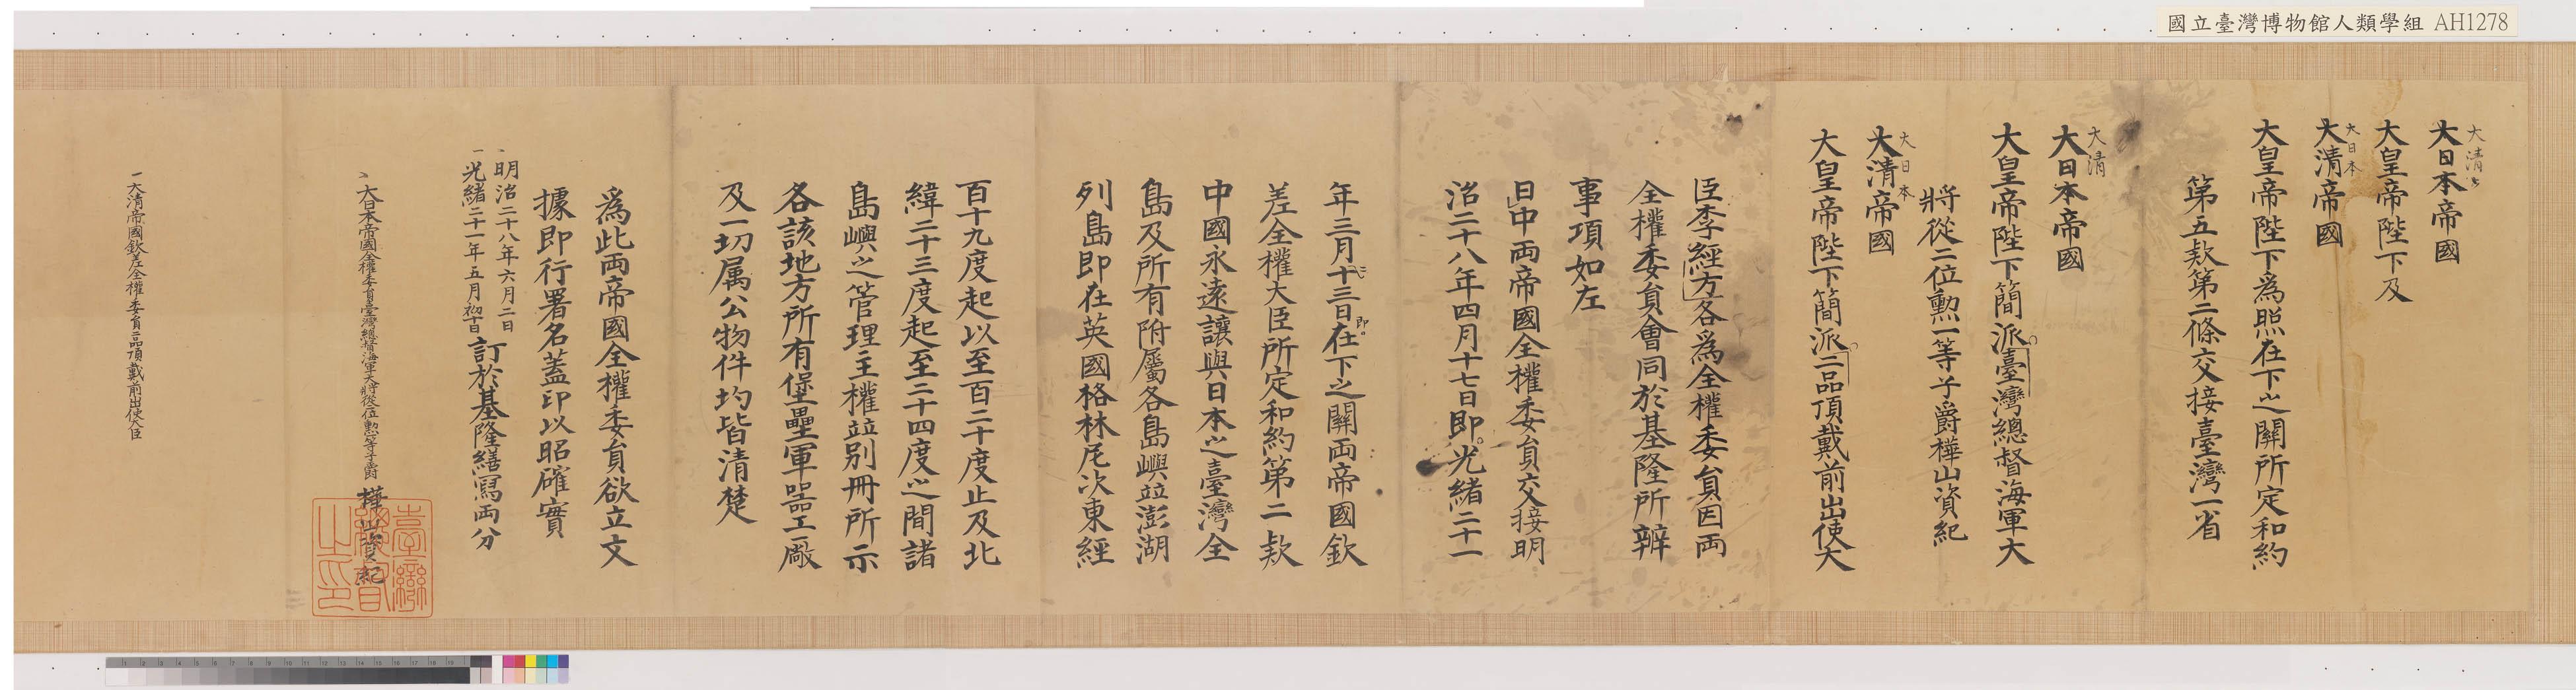 國立臺灣博物館人類學組 AH1278
大清
大日本帝國
大皇帝陛下及
大日本
大清帝國
大皇帝陛下為照在下之關所定和約
第五款第二條交接臺灣一省
大清
大日本帝國
大皇帝陛下簡派臺灣總督海軍大
將從二位勳一等子爵樺山資紀
大日本
大清帝國
大皇帝陛下簡派二品頂戴前出使大
臣李經方各為全權委員因両
全權委員會同於基隆所辨
事項如左
日中両帝國全權委員交接明
治二十八年四月十七日即光緒二十一
年三月二十三日即在下之關両帝國欽
差全權大臣所定和約第二款
中國永遠讓與日本之臺灣全
島及所有附屬各島嶼竝澎湖
列島即在英國格林尼次東經
百十九度起以至百二十度止及北
緯二十三度起至二十四度之間諸
島嶼之管理主權竝別冊所示
各該地方所有堡壘軍器工廠
及一切属公物件均皆清楚
為此両帝國全權委員欲立文
據即行署名蓋印以昭確實
明治二十八年六月二日
光緒二十一年五月初十日
訂於基隆繕寫両分
大日本帝國全權委員臺灣總督海軍大將從二位勳一等子爵 樺山資紀
臺灣總督之印
一大清帝國欽差全權委員二品頂戴前出使大臣